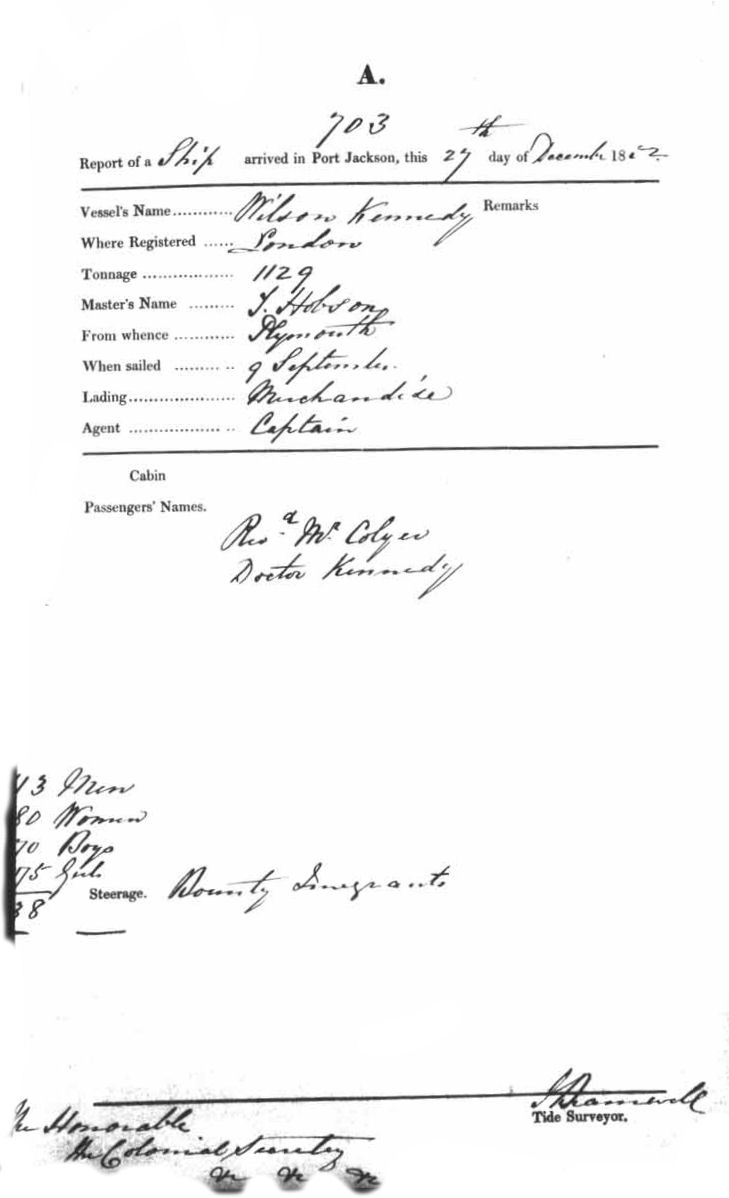 A.
703
Report of a Ship arrived in Port Jackson, this 27th day of December 1852
Vessel's Name ............ Wilson Kennedy Remarks
Where Registered ...... London
Tonnage .................. 1129
Master's Name ......... T. Hobson
From whence ............ Plymouth
When sailed ......... .. 9 September
Lading..................... Merchandise
Agent .................. .. Captain
Cabin
Passengers' Names.
Revd. Mr Colyer
Doctor Kennedy
13 Men
80 Women
70 Boys
75 Girls
Steerage. Bounty Imegrants
38
Tide Surveyor.
The Honorable
the Colonial Secretary